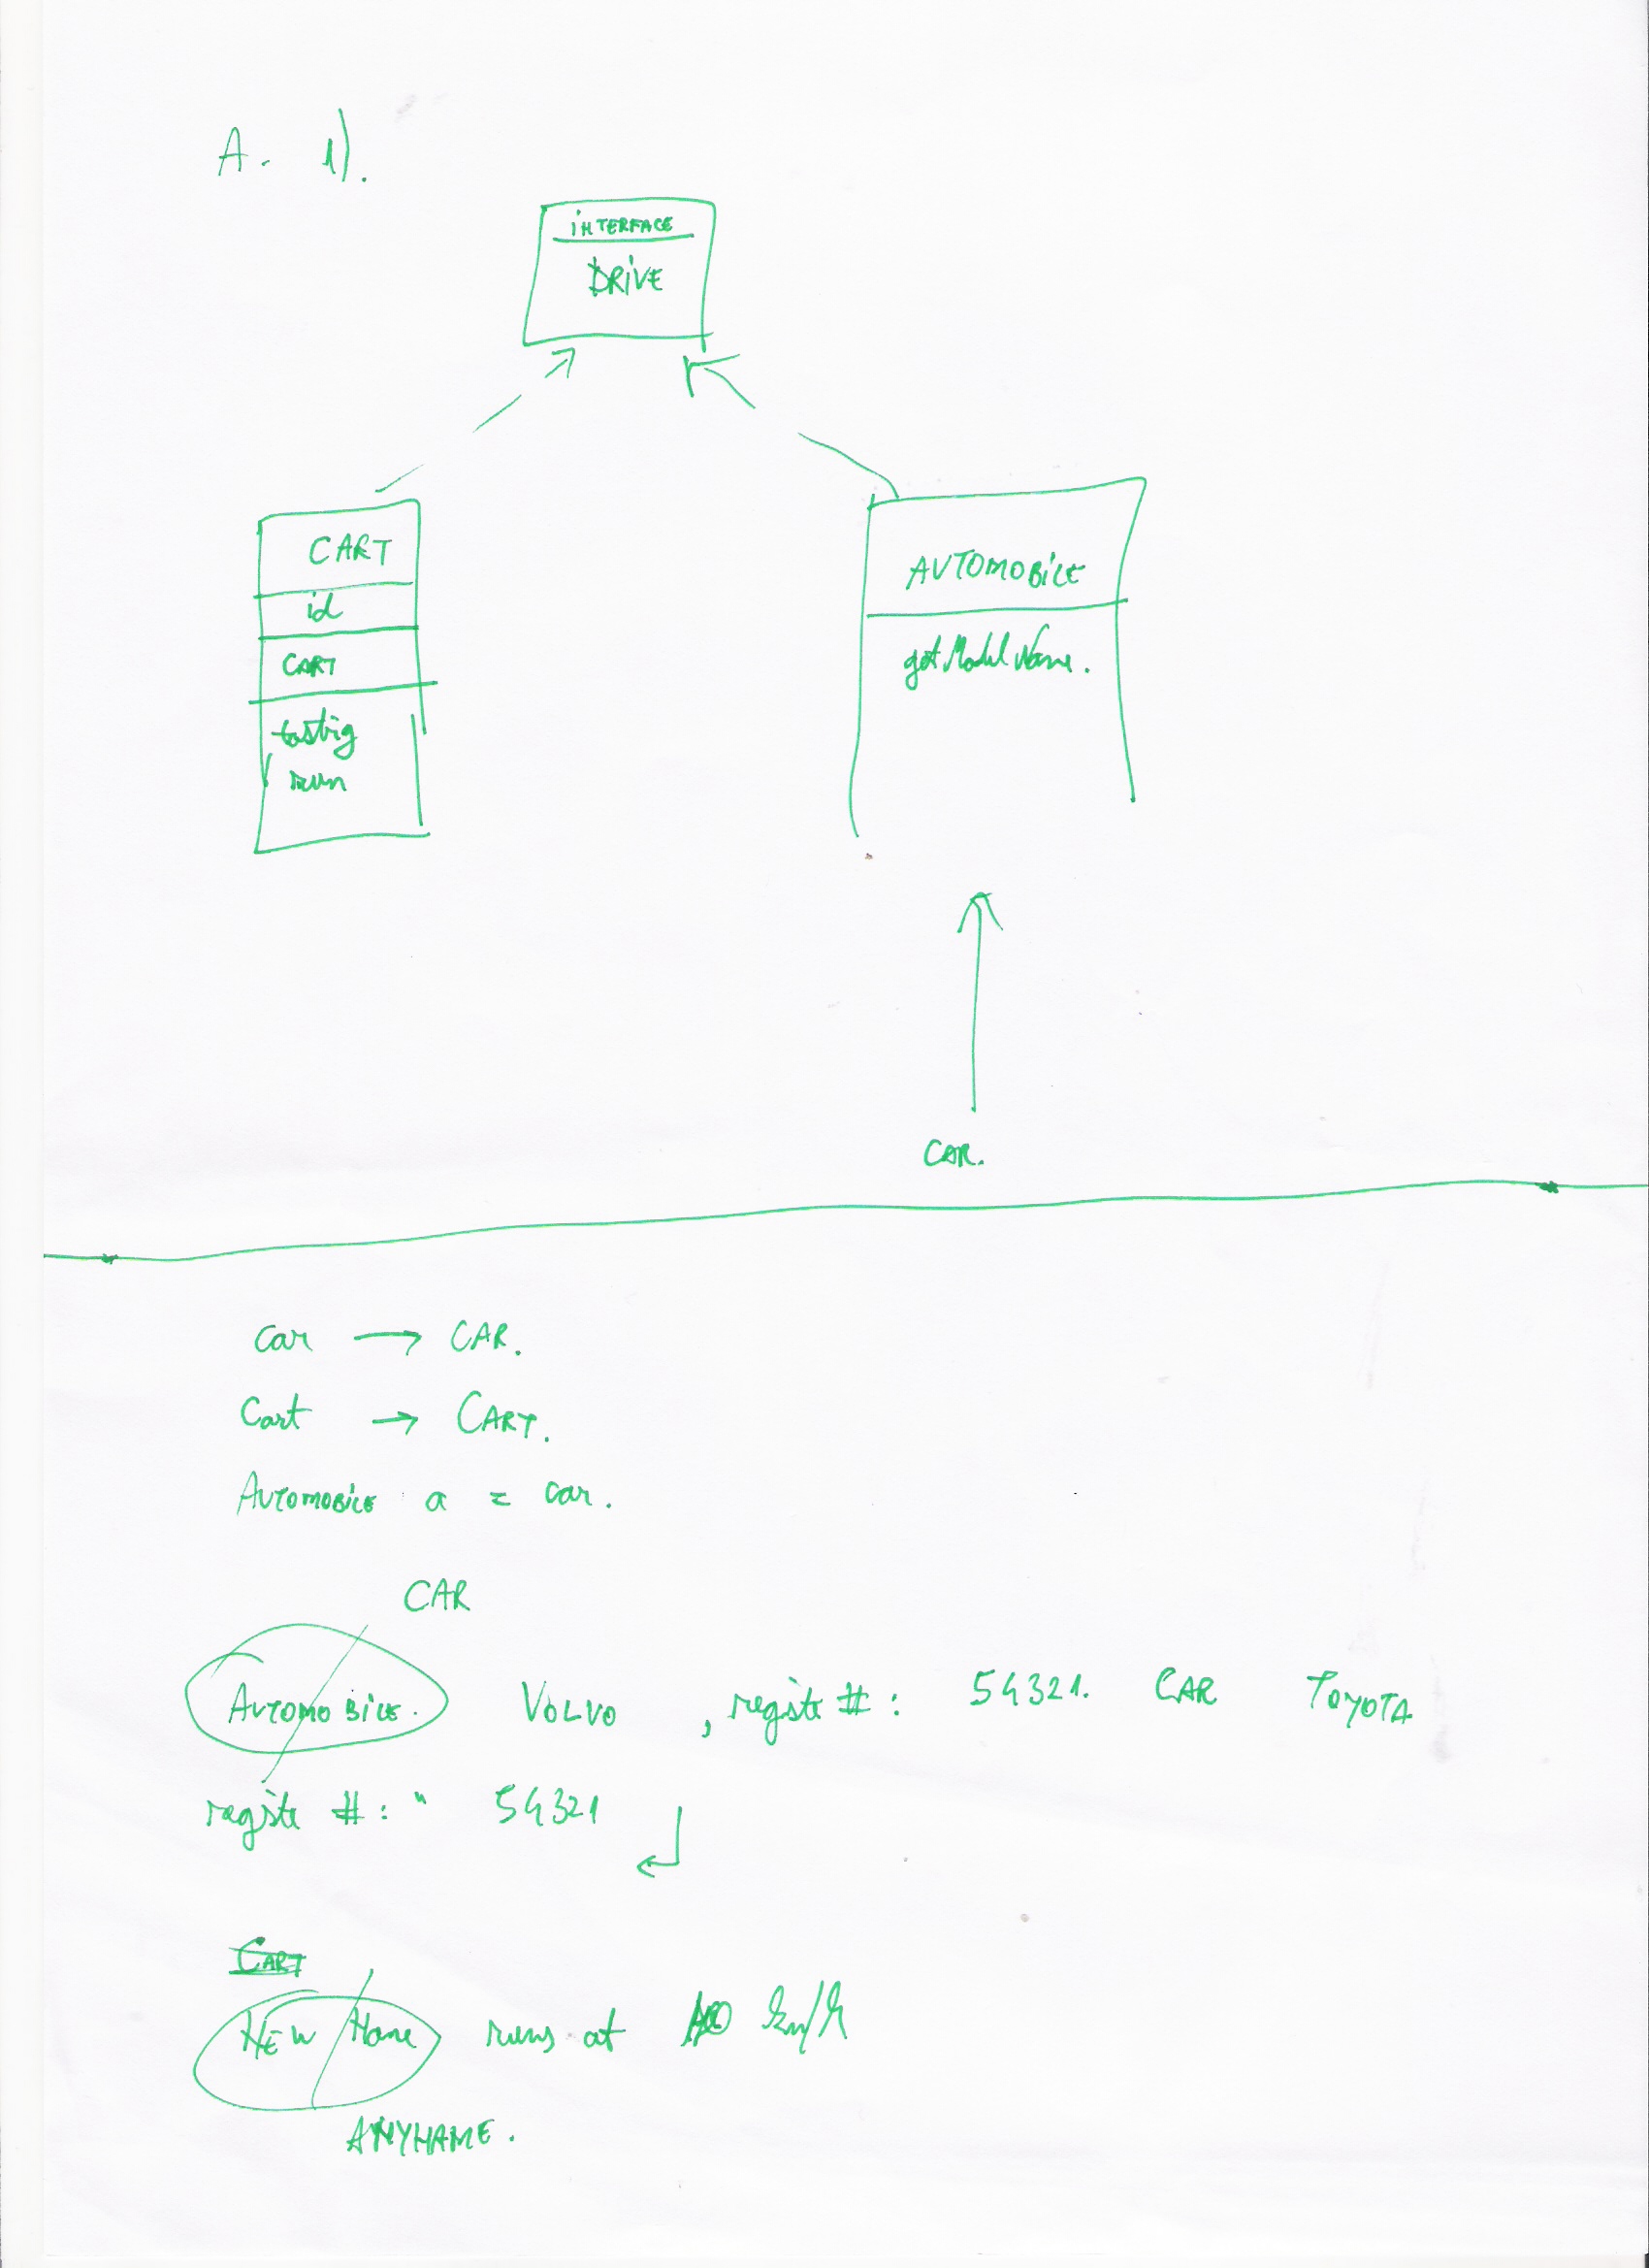 A. 1).
iNTERFACE
DRiVE
CART
id
CART
run
AUTOMOBiLE
getModelName.
CAR.
car → CAR.
Cart → CART.
AUTOMOBiLE a = car.
CAR
AUTOMOBiLE. VOLVO , registe #: 54321. CAR TOYOTA
registe #: " 54321
CART
NEW Name runs at km/h
ANYNAME.